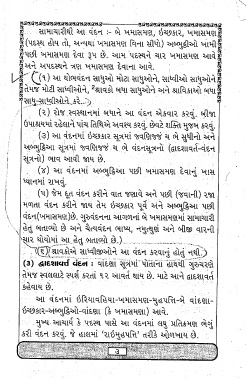 સામાચારીથી આ વંદન :- બે ખમાસમણ, ઇચ્છકાર, ખમાસમણ
(પદસ્થ હોય તો, અન્યથા ખમાસમણ વિના સીધો) અબ્ભુટ્ઠિઓ ખામી
પછી ખમાસમણ દેવા રૂપ છે. આમ પદસ્થને ચાર ખમાસમણ આવે
અને અપદસ્થને ત્રણ ખમાસમણ દેવાના આવે.
(૧) આ થોભવંદન સાધુઓ મોટા સાધુઓને, સાધ્વીઓ સાધુઓને
તેમજ મોટી સાધ્વીઓને, શ્રાવકો બધા સાધુઓને અને શ્રાવિકાઓ બધા
સાધુ-સાધ્વીઓને કરે.
(૨) રોજ સ્વસ્થાનમાં બધાને આ વંદન એકવાર કરવું. બીજા
ઉપાશ્રયમાં રહેલાને પાંચ તિથિએ અવશ્ય કરવું, છેવટે શક્તિ મુજબ કરવું.
(૩) આ વંદનમાં ઇચ્છકાર સૂત્રમાં જવણિજ્જં ચ ભે સુધીનો અને
અબ્ભુટ્ઠિઓ સૂત્રમાં જવણિજ્જં ચ ભે વંદનસૂત્રનો (દ્વાદશાવર્ત-વંદન
સૂત્રનો) ભાવ આવી જાય છે.
(૪) આ વંદનમાં અબ્ભુટ્ઠિઆ પછી ખમાસમણ દેવાનું ખાસ
ધ્યાનમાં રાખવું.
(૫) જેમ દૂત વંદન કરીને વાત જણાવે અને પછી (જવાની) રજા
મળતા વંદન કરીને જાય તેમ ઇચ્છકાર પૂર્વે અને અબ્ભુટ્ઠિઆ પછી
વંદન(ખમાસમણ)છે. ગુરુવંદનના આગળના બે ખમાસમણમાં સામાચારી
હેતુ બતાવ્યો છે અને ચૈત્યવંદન ભાષ્ય, નમુત્થુણં અને બીજી વારની
ચાર થોયોમાં આ હેતુ બતાવ્યો છે.)
(૬) શ્રાવકોએ સાધ્વીજીઓને આ વંદન કરવાનું હોતું નથી.
(૩) દ્વાદશાવર્ત વંદન : વાંદણા સૂત્રમાં પોતાના હાથથી ગુરુચરણે
તેમજ સ્વલલાટે સ્પર્શ કરતાં ૧૨ આવર્ત થાય છે. માટે આને દ્વાદશાવર્ત
કહેવાય છે.
આ વંદનમાં ઇરિયાવહિયા-ખમાસમણ-મુહપત્તિ-બે વાંદણા-
ઇચ્છકાર-અબ્ભુટ્ઠિઓ-વાંદણા (કે ખમાસમણા) આવે.
મુખ્ય આચાર્ય કે પદસ્થ પાસે આ વંદનમાં લઘુ પ્રતિક્રમણ ભેગું
કરી વંદન કરવું. જે હાલમાં 'રાઇમુહપત્તિ' તરીકે ઓળખાય છે.
3